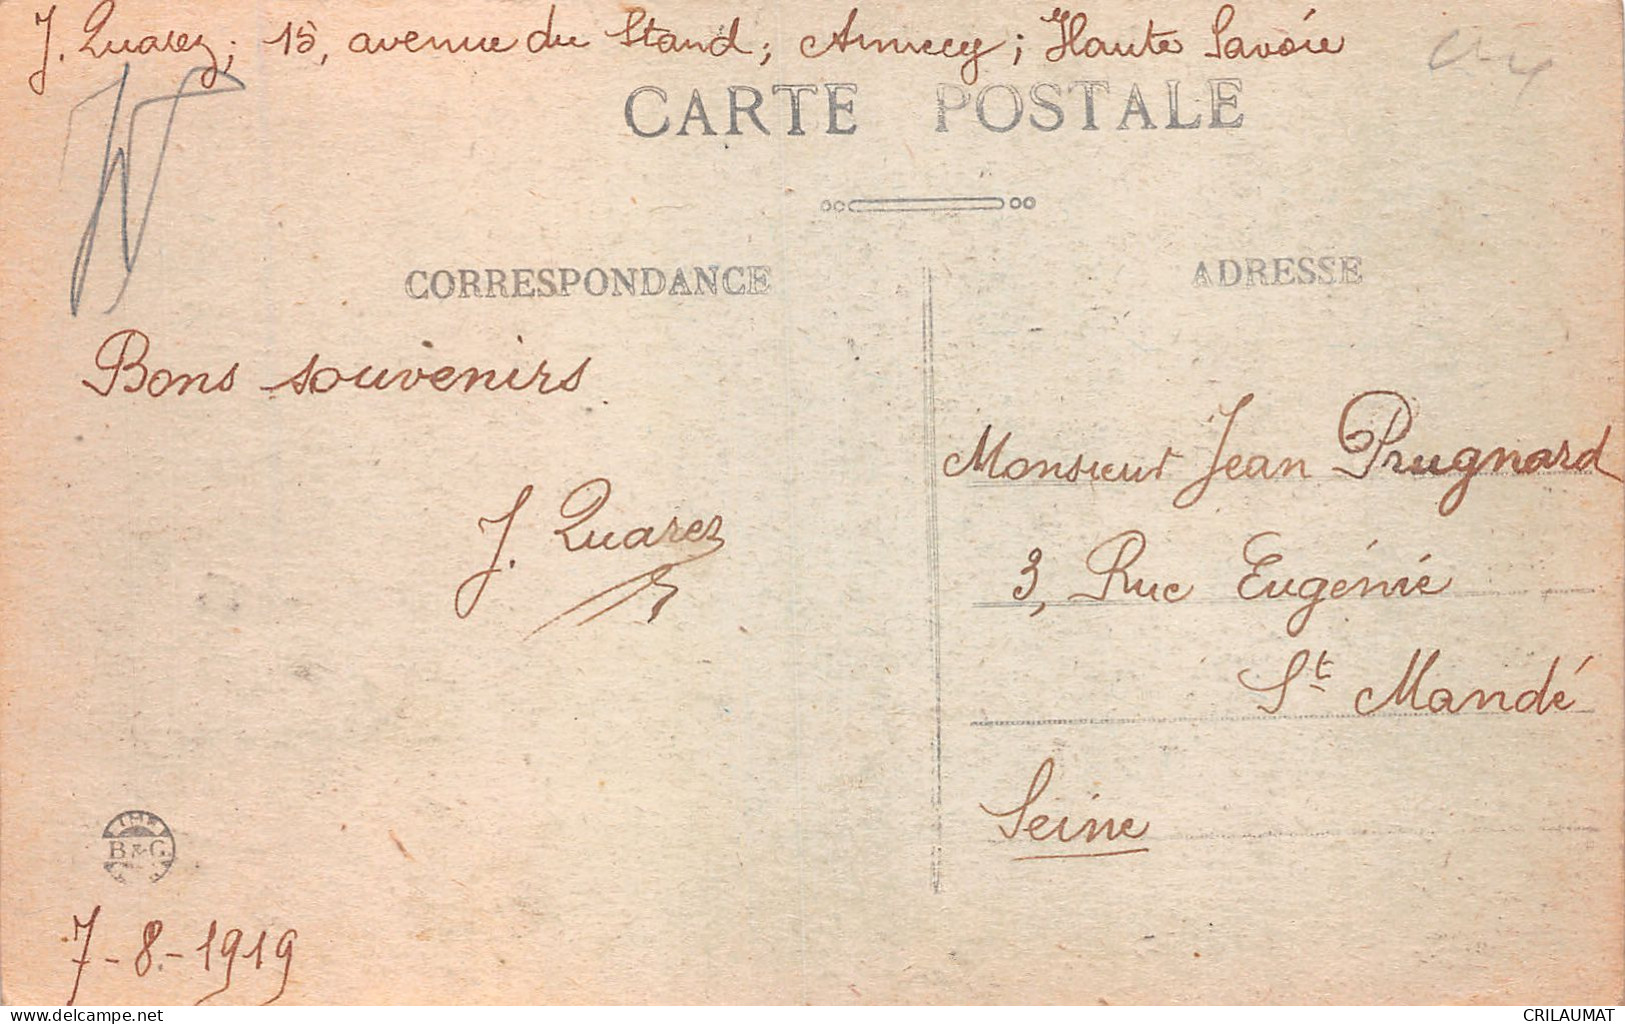 J. Quarez; 15, avenue du Stand; Annecy; Haute Savoie
CARTE POSTALE
CORRESPONDANCE
ADRESSE
Bons souvenirs
J. Quarez
Monsieur Jean Prugnard
3, Rue Eugénie
St Mandé
Seine
B & G
7-8-1919
delcampe.net
CRILAUMAT